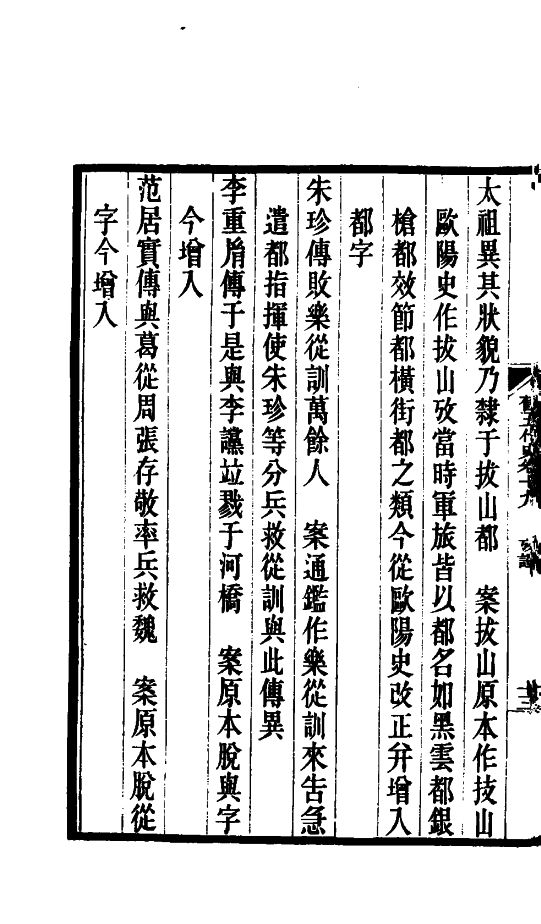 太祖異其狀貌乃隸于拔山都　案拔山原本作技山
歐陽史作拔山攷當時軍旅皆以都名如黑雲都銀
槍都效節都橫街都之類今從歐陽史改正并增入
都字
朱珍傳敗樂從訓萬餘人　案通鑑作樂從訓來告急
遣都指揮使朱珍等分兵救從訓與此傳異
李重胤傳于是與李讜竝戮于河橋　案原本脫與字
今增入
范居實傳與葛從周張存敬率兵救魏　案原本脫從
字今增入